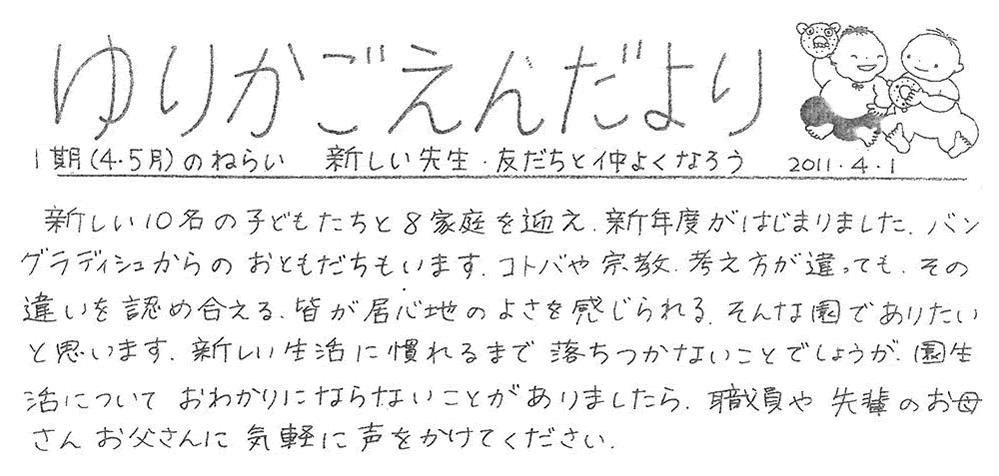 ゆりかごえんだより
1期(4・5月)のねらい 新しい先生・友だちと仲よくなろう 2011・4・1
新しい10名の子どもたちと8家庭を迎え、新年度がはじまりました。バン
グラディシュからのおともだちもいます。コトバや宗教、考え方が違っても、その
違いを認め合える、皆が居心地のよさを感じられる、そんな園でありたい
と思います。新しい生活に慣れるまで落ちつかないことでしょうが、園生
活についておわかりにならないことがありましたら、職員や先輩のお母
さんお父さんに気軽に声をかけてください。